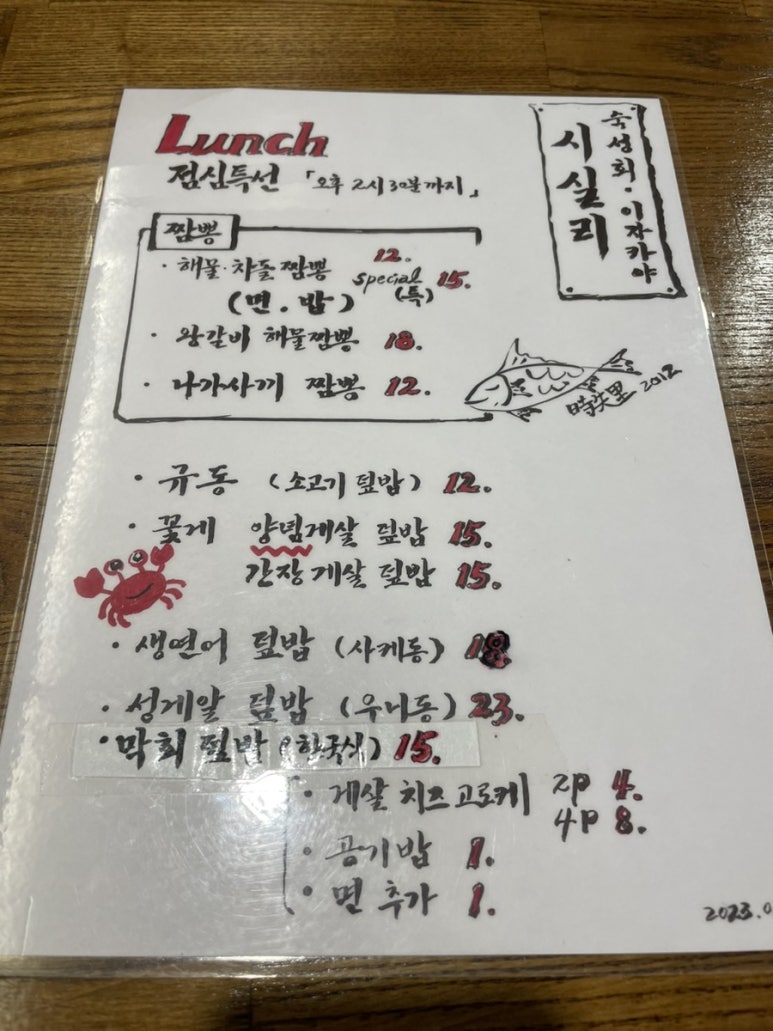 Lunch
점심특선 「오후 2시30분까지」
숙성회·이자카야
시실리
짬뽕
· 해물·차돌짬뽕 12.
special (특) 15.
(면.밥)
· 왕갈비 해물짬뽕 18.
· 나가사끼 짬뽕 12.
時失里 2012
· 규동 (소고기덮밥) 12.
· 꽃게 양념게살 덮밥 15.
간장게살 덮밥 15.
· 생연어 덮밥 (사케동) 18.
· 성게알 덮밥 (우니동) 23.
· 막회덮밥 (한국식) 15.
· 게살치즈고로케 2P 4.
4P 8.
· 공기밥 1.
· 면 추가 1.
2023.0